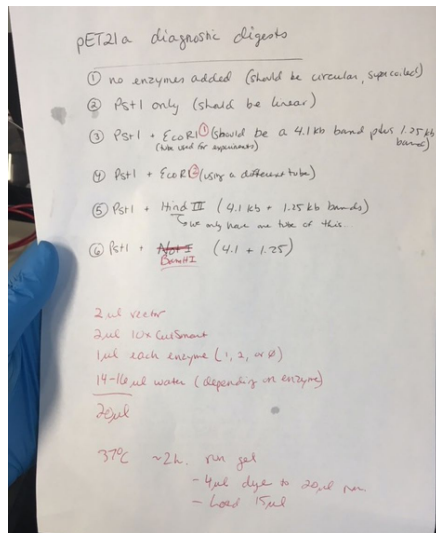 pET21a diagnostic digests
① no enzymes added (should be circular, supercoiled)
② Pst1 only (should be linear)
③ Pst1 + EcoRI ① (should be a 4.1 kb band plus 1.25 kb band)
(tube used for experiments)
④ Pst1 + EcoRI ② (using a different tube)
⑤ Pst1 + Hind III (4.1 kb + 1.25 kb bands)
↳ we only have one tube of this.
⑥ Pst1 + Not I (4.1 + 1.25)
BamHI
2 ul vector
2 ul 10x CutSmart
1 ul each enzyme (1, 2, or Ø)
14-16 ul water (depending on enzyme)
20 ul
37°C ~2h. run gel
- 4 ul dye to 20 ul rxn
- load 15 ul